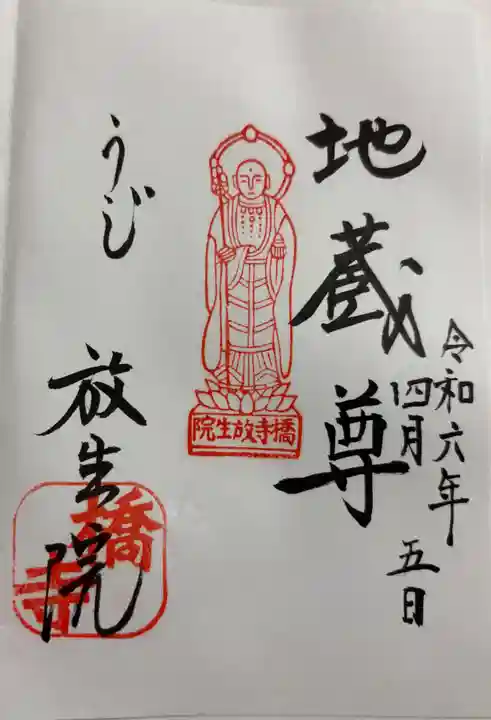 令和六年
四月五日
地蔵尊
院生放寺橋
うじ
放生院
橋寺